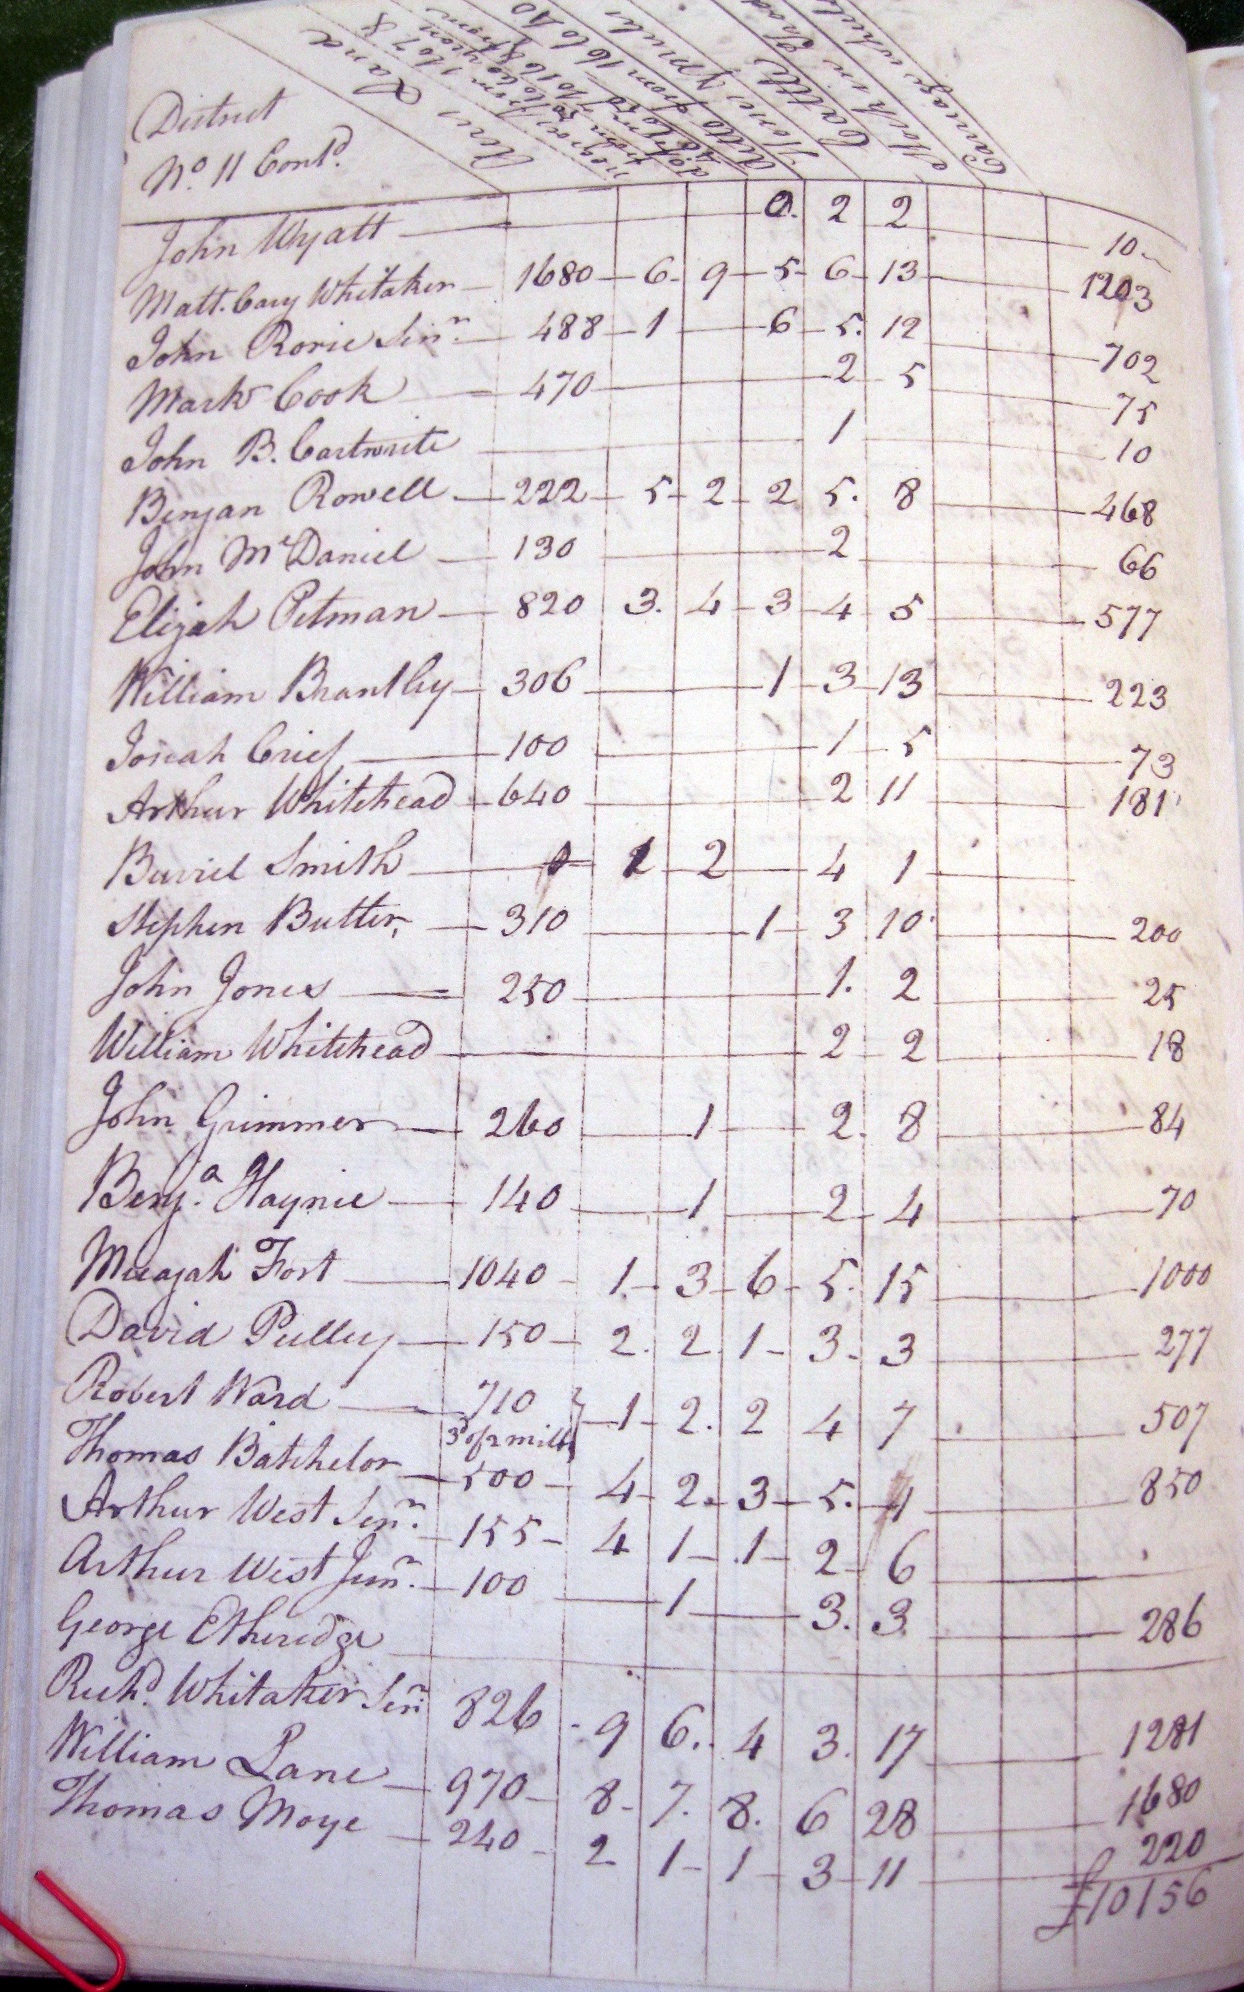 District
No. 11 Contd.
Acres Land
Horses & mules
Cattle
Carriage wheels
John Wyatt 0. 2 2 10
Matt. Cary Whitaker 1680 6 9 5 6 13 1203
John Rorie Senr. 488 1 6 5. 12 702
Mark Cook 470 2 5 75
John B. Cartwrite 1 10
Benjan Rowell 222 5 2 2 5. 8 468
John McDaniel 130 2 66
Elijah Pitman 820 3. 4 3 4 5 577
William Brantley 306 1 3 13 223
Josiah 100 1 5 73
Arthur Whitehead 640 2 11 181
Burriel Smith 2 4 1
Stephen Butter, 310 1 3 10 200
John Jones 250 1. 2 25
William Whitehead 2 2 18
John Grimmer 260 1 2. 8 84
Benja. Haynie 140 1 2 4 70
Micajah Fort 1040 1. 3 6 5. 15 1000
David Pulley 150 2. 2. 1 3. 3 277
Robert Ward 710 1 2. 2 4 7 507
3d of 2 mills
Thomas Batchelor 500 4 2. 3 5. 850
Arthur West Senr. 155 4 1 1 2 6
Arthur West Junr. 100 1 3. 3 286
George Etheridge
Richd. Whitaker Senr. 826 9 6. 4 3. 17 1281
William Lane 970 8 7. 8. 6 28 1680
Thomas Moye 240 2 1 1 3 11 220
£10156